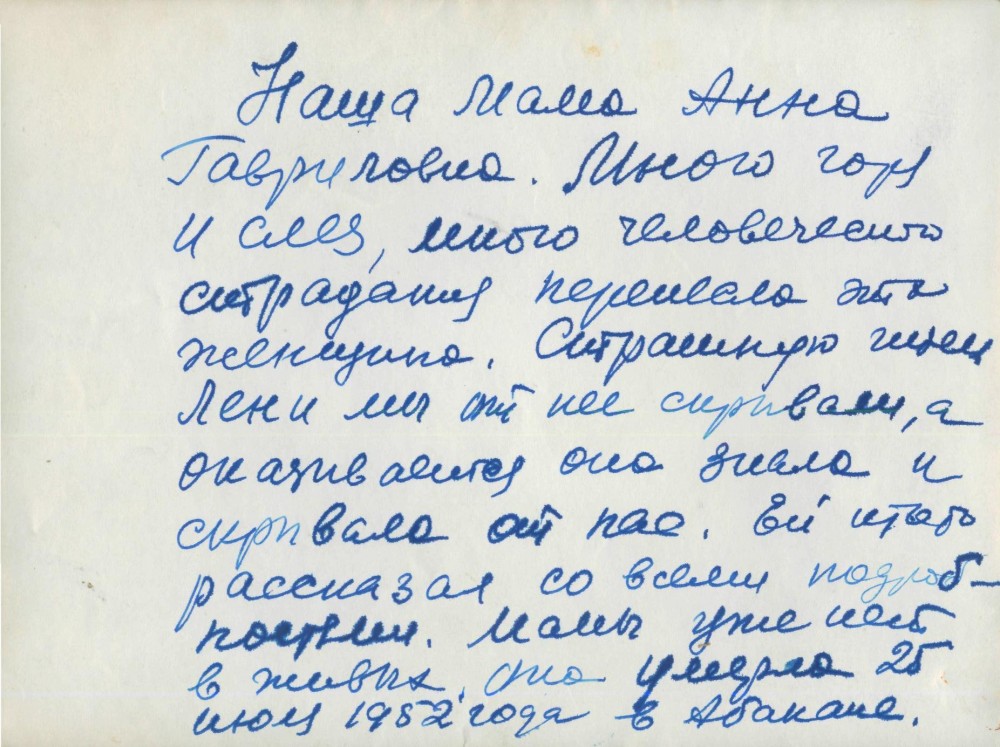 Наша Мама Анна
Гавриловна. Много горя
и слез, много человеческого
страдания перенесла эта
женщина. Страшную гибель
Лени мы от нее скрывали, а
оказывается она знала и
скрывала от нас. Ей кто-то
рассказал со всеми подроб-
ностями. Мамы уже нет
в живых, она умерла 25
июля 1952 года в Абакане.